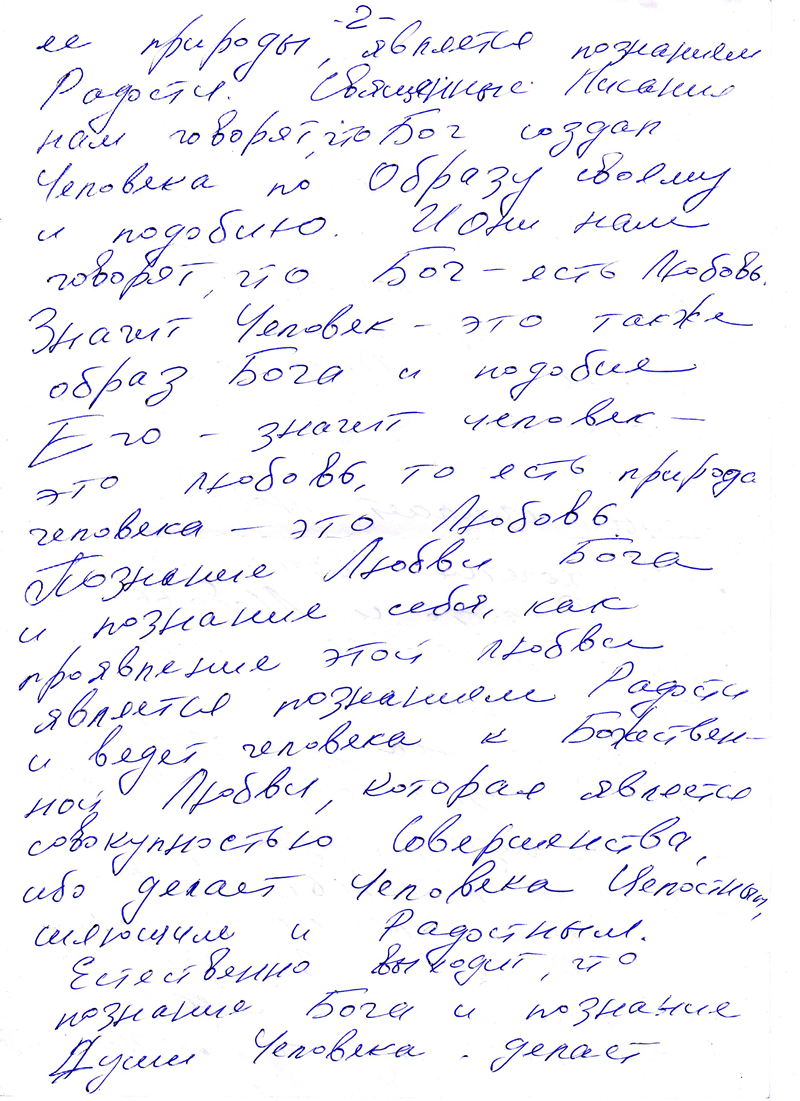 -2-
ее природы, является познанием
Радости. Священные Писания
нам говорят, что Бог создал
Человека по Образу своему
и подобию. И они нам
говорят, что Бог - есть Любовь.
Значит Человек - это также
образ Бога и подобие
Его - значит человек -
это любовь, то есть природа
человека - это Любовь.
Познание Любви Бога
и познание себя, как
проявление этой любви
является познанием Радости
и ведет человека к Божествен-
ной Любви, которая является
совокупностью Совершенства,
ибо делает Человека Целостным,
сияющим и Радостным.
Естественно выходит, что
познание Бога и познание
Души Человека делает